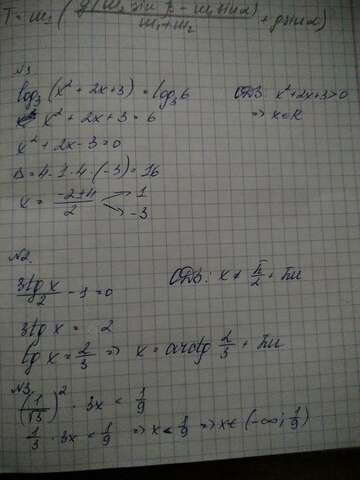 T = m₁ ( g(m₂ sin β - m₁ sin α) / m₁+m₂ + g sin α )
№1
log₃ (x² + 2x + 3) = log₃ 6 ОДЗ: x² + 2x + 3 > 0
x² + 2x + 3 = 6 ⇒ x ∈ R
x² + 2x - 3 = 0
D = 4 - 1 · 4 · (-3) = 16
x = -2±4 / 2 → 1
→ -3
№2.
3tg x / 2 - 1 = 0 ОДЗ: x ≠ π/2 + πn
3tg x = 2
tg x = 2/3 ⇒ x = arctg 2/3 + πn
№3
(1/√3)² · 3x < 1/9
1/3 · 3x < 1/9 ⇒ x < 1/9 ⇒ x ∈ (-∞; 1/9)